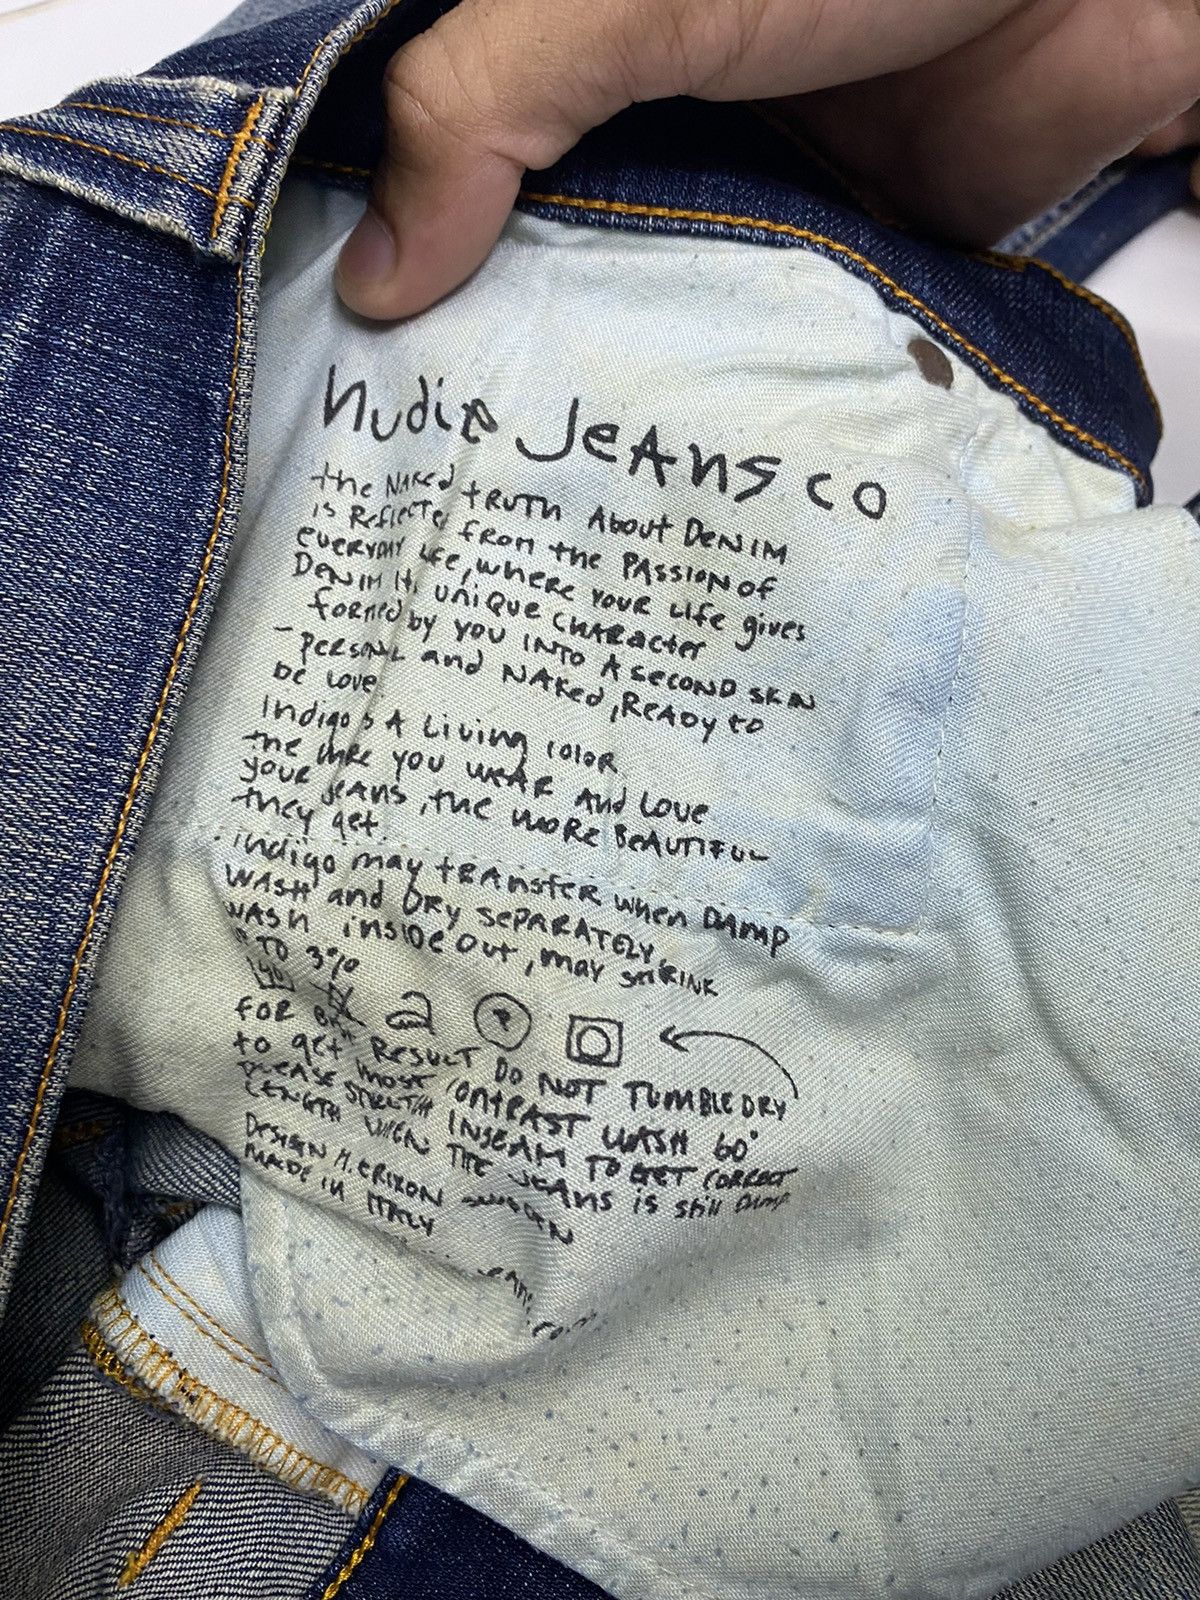 Nudie Jeans co
the NAKed tRUTH About DENIM
is Reflected from the PASSION of
everyday Life, where your Life gives
DENIM its unique CHARacter
formed by you INTO A second skin
- personal and NAKed, READY to
be Love.
Indigo is A Living color.
the more you WEAR And Love
your jeans, the more BeAUTIFUL
they get.
indigo may tRAnsfeR when DAMP
WASH and DRY SEPARATELY.
WASH inside out, may shRINK
UP TO 3%
40
FOR BEST RESULT DO NOT TUMBLE DRY
to get most CONTRAST WASH 60°
PLEASE STRETCH INSEAM TO GET CORRECT
LENGTH WHEN THE JEANS is still DAMP
DESIGN M. ERIXON SWEDEN
MADE in ITALY